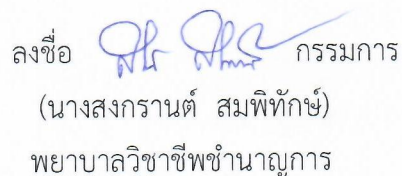 ลงชื่อ กรรมการ
(นางสงกรานต์ สมพิทักษ์)
พยาบาลวิชาชีพชำนาญการ